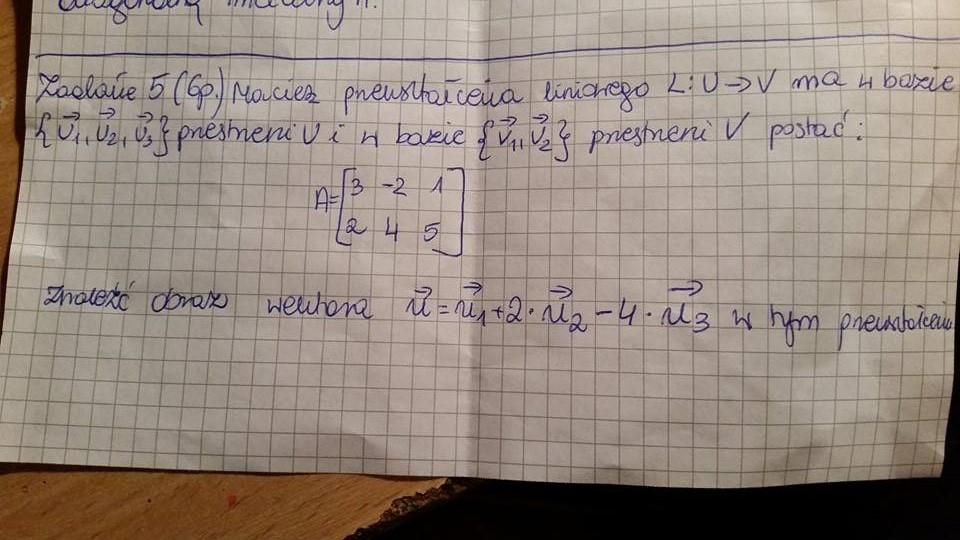 Zadanie 5 (6p.) Macierz przekształcenia liniowego L: U → V ma w bazie
{u⃗1, u⃗2, u⃗3} przestrzeni U i w bazie {v⃗1, v⃗2} przestrzeni V postać:
A = [3 -2 1
2 4 5]
Znaleźć obraz wektora u⃗ = u⃗1 + 2 · u⃗2 - 4 · u⃗3 w tym przekształceniu